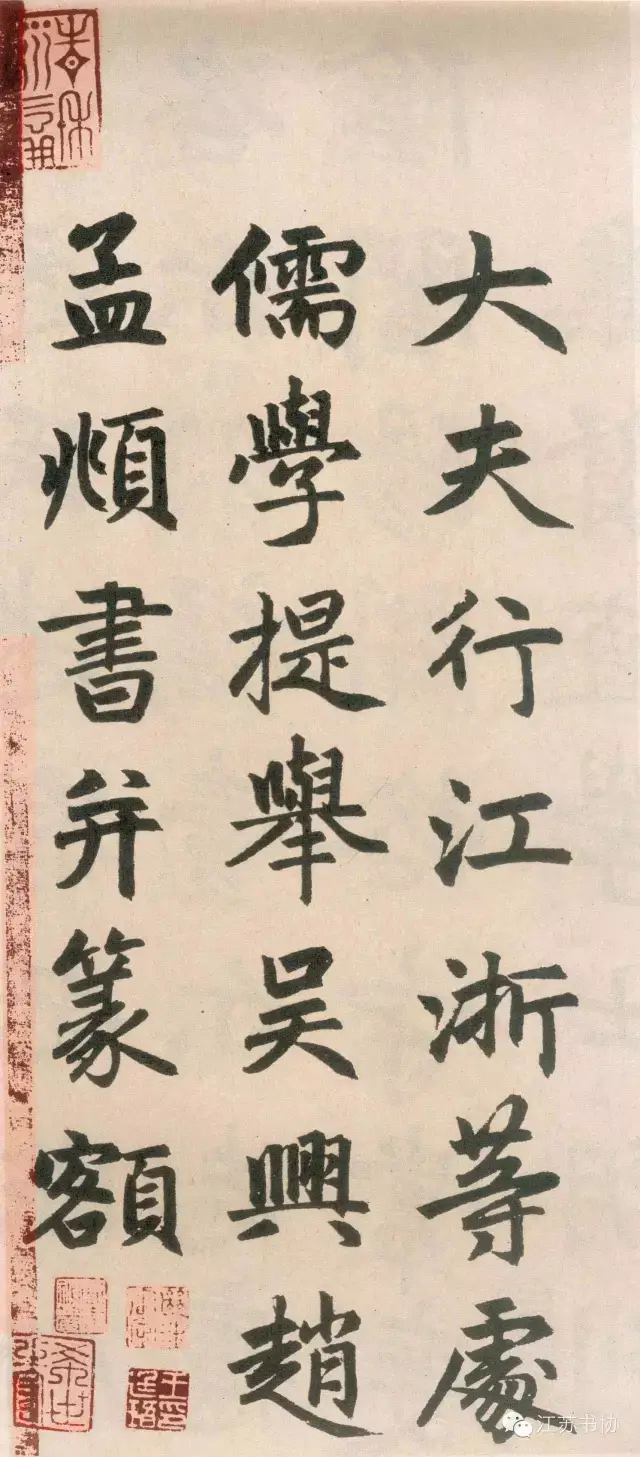 大夫行江浙等處
儒學提舉吴興趙
孟頫書并篆額
江苏书协